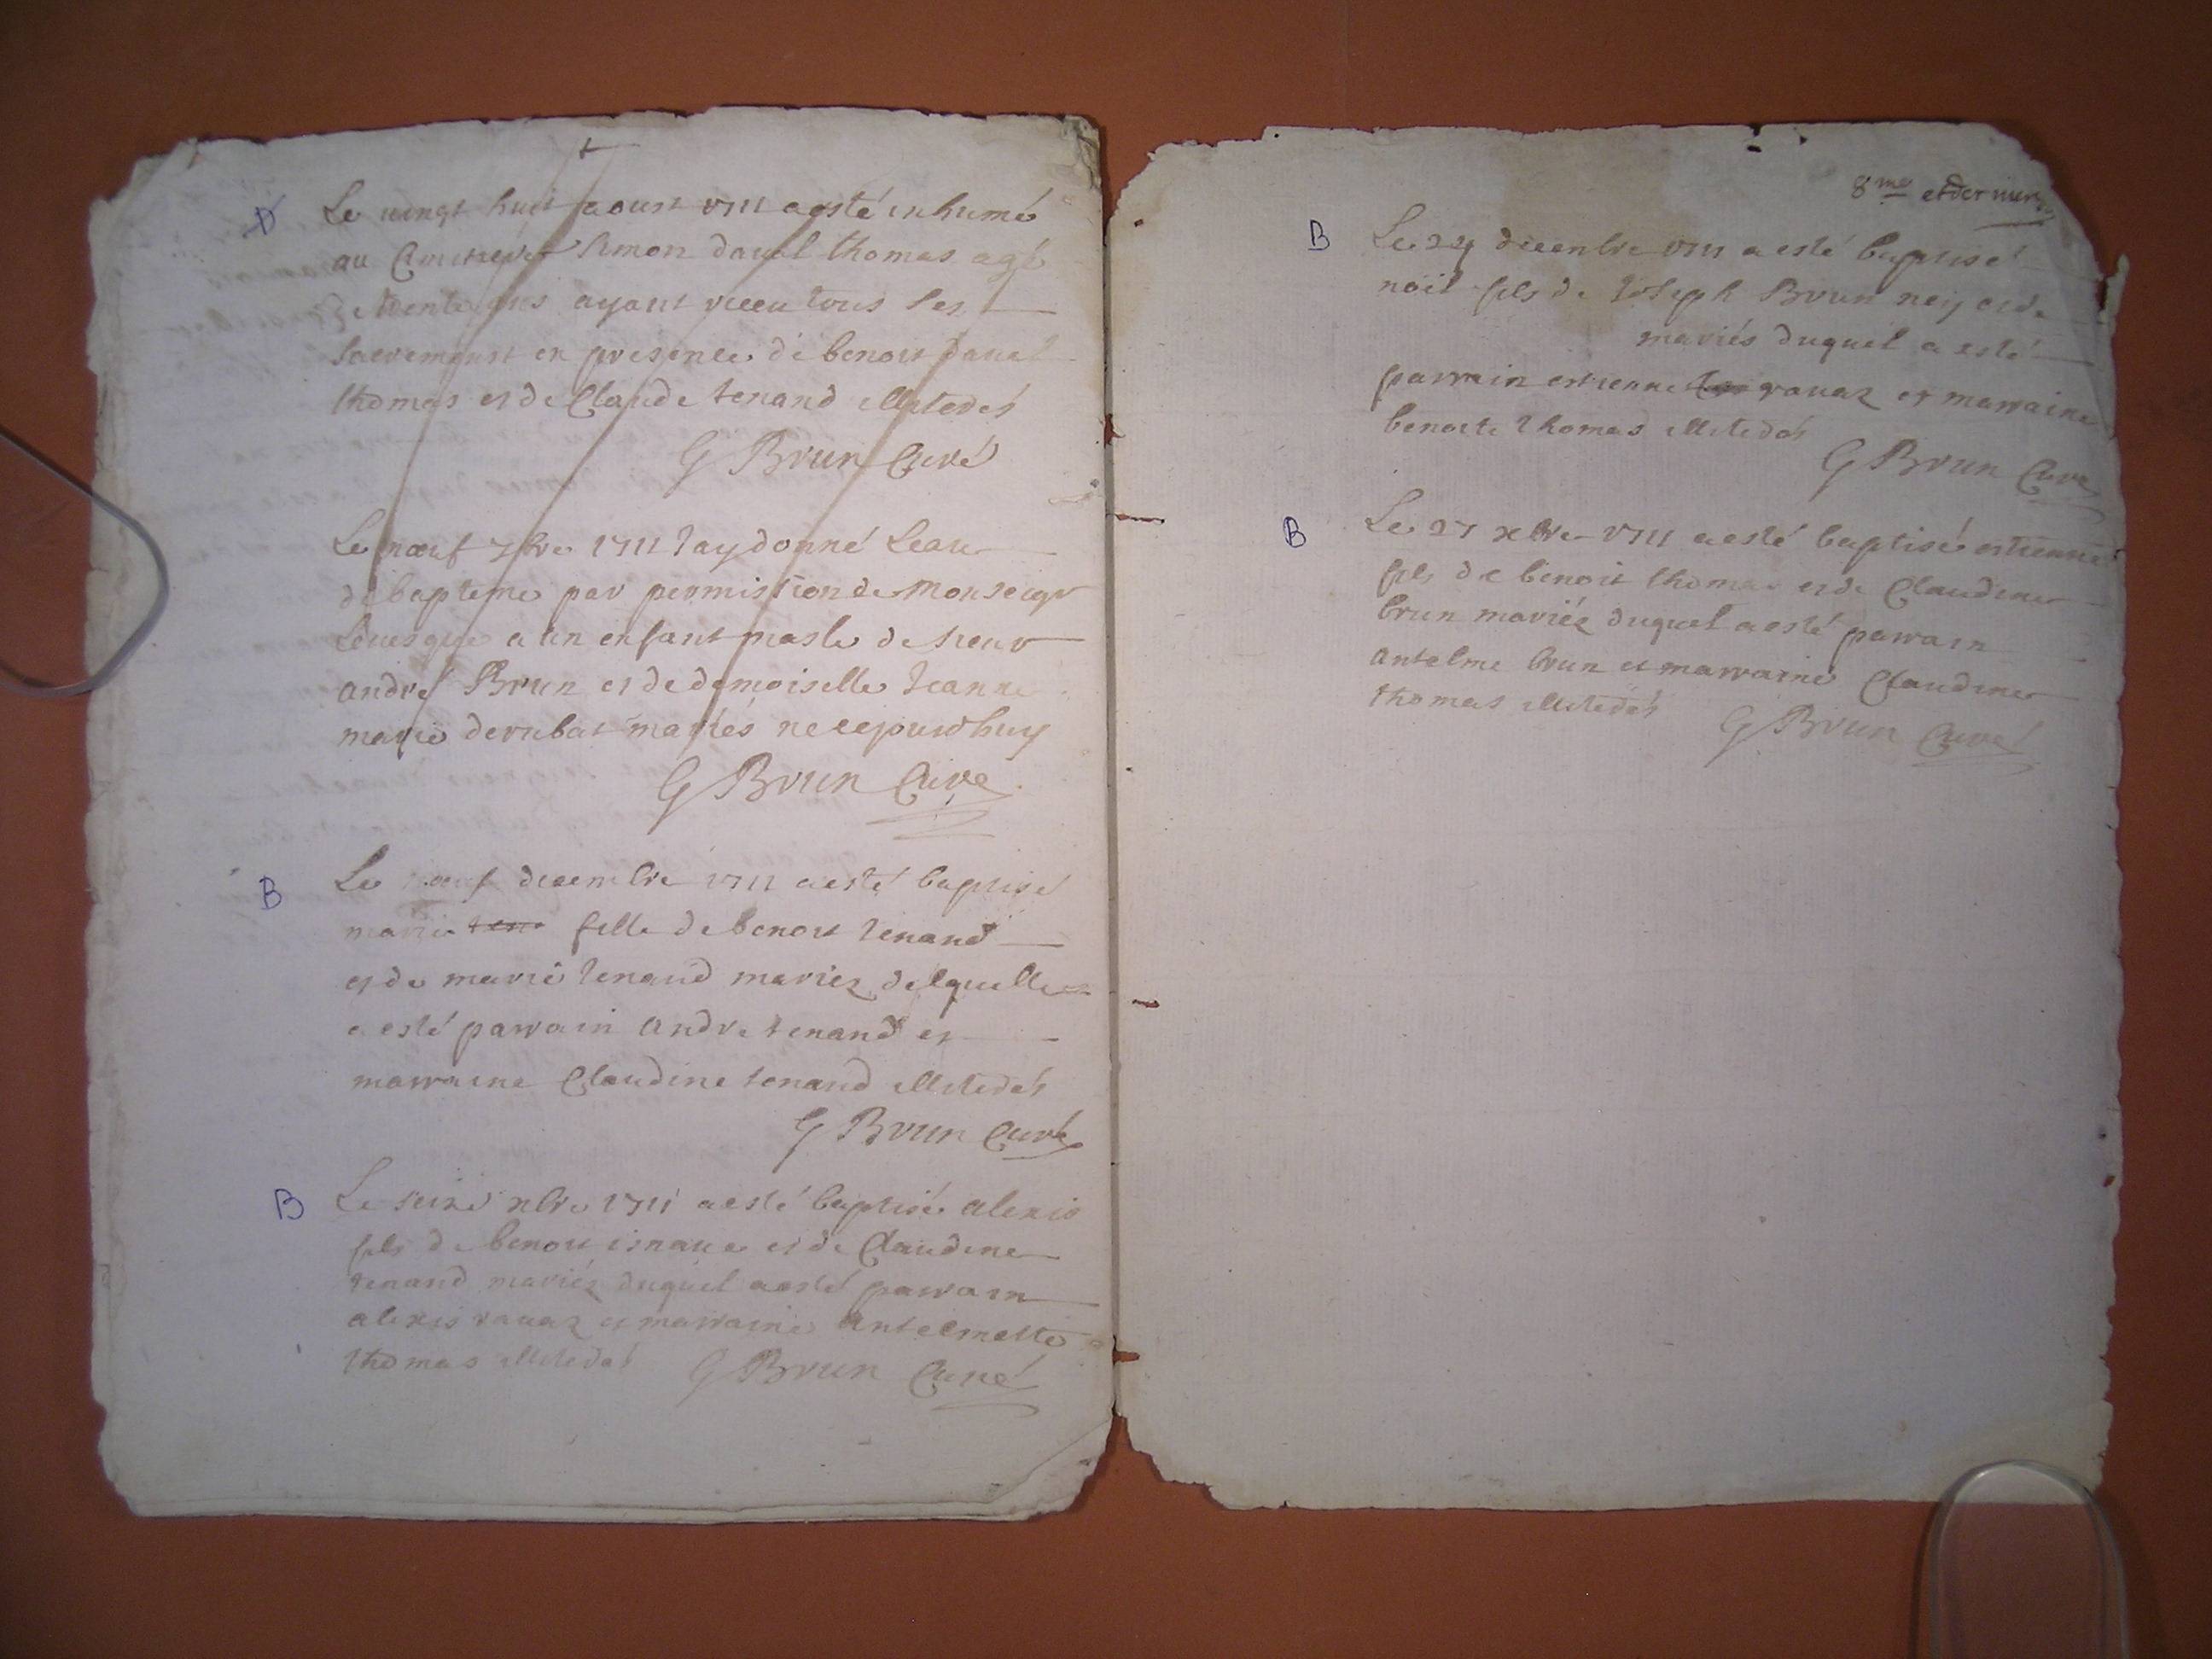 D
Le vingt huit aoust 1711 a esté inhumé
au Cimetiére Simon daval thomas agé
de trente ans ayant receu tous les
sacremenst en presence de benoit daval
thomas et de Claude tenand illiterés
G Brun Curé
Le noeuf 7bre 1711 Jay donné Leau
de bapteme par permission de Monseigr
Levesque a un enfant masle de sieur
andre Brun et de demoiselle Jeanne
marie derubat mariés ne cejourdhuy
G Brun Curé
B
Le noeuf decembre 1711 a esté baptisé
marie fille de benoit tenand
et de marie tenand mariez delquelle
a esté parrain andre tenand et
marraine Claudine tenand illiterés
G Brun Curé
B
Le seize xbre 1711 a esté baptisé alexis
fils de benoit et de Claudine
tenand mariés duquel a esté parrain
alexis ravaz et marraine antelmette
thomas illiterés G Brun Curé
8me et dernier
B
Le 24 decembre 1711 a esté baptisé
noël fils de Joseph Brun ney et de
mariés duquel a esté
parrain estienne ravaz et marraine
benoite thomas illiterés
G Brun Curé
B
Le 27 xbre 1711 a esté baptisé estienne
fils de benoit thomas et de Claudine
brun mariéz duquel a esté parrain
antelme brun et marraine Claudine
thomas illiterés G Brun Curé